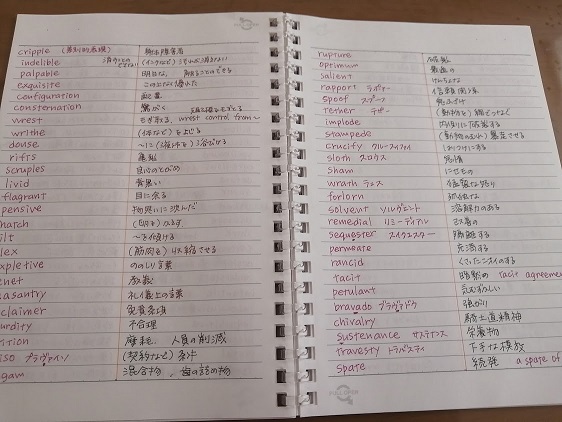 cripple (差別的表現) 身体障害者
indelible
palpable 明白な、触ることのできる
exquisite この上なく優れた
configuration 配置
consternation 驚がく
wrest もぎ取る、wrest control from~
writhe (体など)をよじる
douse ~に(液体を)浴びせる
rifts 亀裂
scruples 良心のとがめ
livid 青黒い
flagrant 目に余る
pensive 物思いに沈んだ
hatch (卵を)かえす
ilt ~を傾ける
lex (筋肉を)収縮させる
xpletive ののしり言葉
enet 教義
asantry 礼儀上の言葉
claimer 免責条項
urdity 不合理
ition 摩耗、人員の削減
iso プラヴァイソ (契約など)条件
gam 混合物、歯の詰め物
rupture 破裂
optimum 最適の
salient 顕著な
rapport ラポァー 信頼関係
spoof スプーフ 悪ふざけ
tether テザー (動物を)綱でつなぐ
implode 内側に破裂する
stampede (動物の群れ)暴走させる
crucify クルースィファイ はりつけにする
sloth スロウス 怠惰
sham にせもの
wrath ラェス 猛烈な怒り
forlorn 孤独な
solvent ソルヴェント 溶解力のある
remedial リミーディアル 改善の
sequester スィクエスター 隔離する
permeate 充満する
rancid くさったニオイのする
tacit 暗黙の tacit agreeme
petulant 怒りっぽい
bravado ブラヴァドウ 強がり
chivalry 騎士道精神
sustenance サステナンス 栄養物
travesty トラバスティ 下手な模倣
spate 続発 a spate of